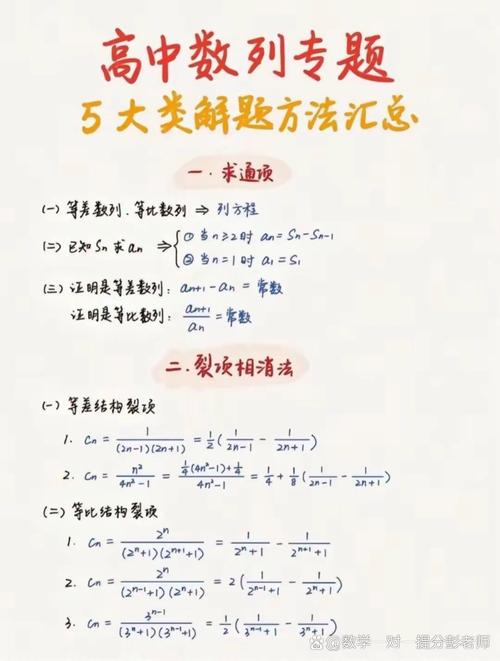 高中数列专题
5大类解题方法汇总
一.求通项
(一) 等差数列、等比数列 ⇒ 列方程
(二) 已知Sn求an ⇒ { ① 当n≥2时 an=Sn-Sn-1
② 当n=1时 a1=S1
(三) 证明是等差数列: an+1-an=常数
证明是等比数列: an+1/an=常数
二.裂项相消法
(一) 等差结构裂项
1. Cn = 1/((2n-1)(2n+1)) = 1/2(1/(2n-1) - 1/(2n+1))
2. Cn = n²/(4n²-1) = (1/4(4n²-1)+1/4)/(4n²-1) = 1/4 + 1/8(1/(2n-1) - 1/(2n+1))
(二) 等比结构裂项
1. Cn = 2^n/((2^n+1)(2^(n+1)+1)) = 1/(2^n+1) - 1/(2^(n+1)+1)
2. Cn = 2^n/((2^(n-1)+1)(2^n+1)) = 2(1/(2^(n-1)+1) - 1/(2^n+1))
3. Cn = 3^(n-1)/((3^n+1)(3^(n-1)+1)) = 1/2(1/(3^(n-1)+1) - 1/(3^n+1))
@数学一对一提分彭老师